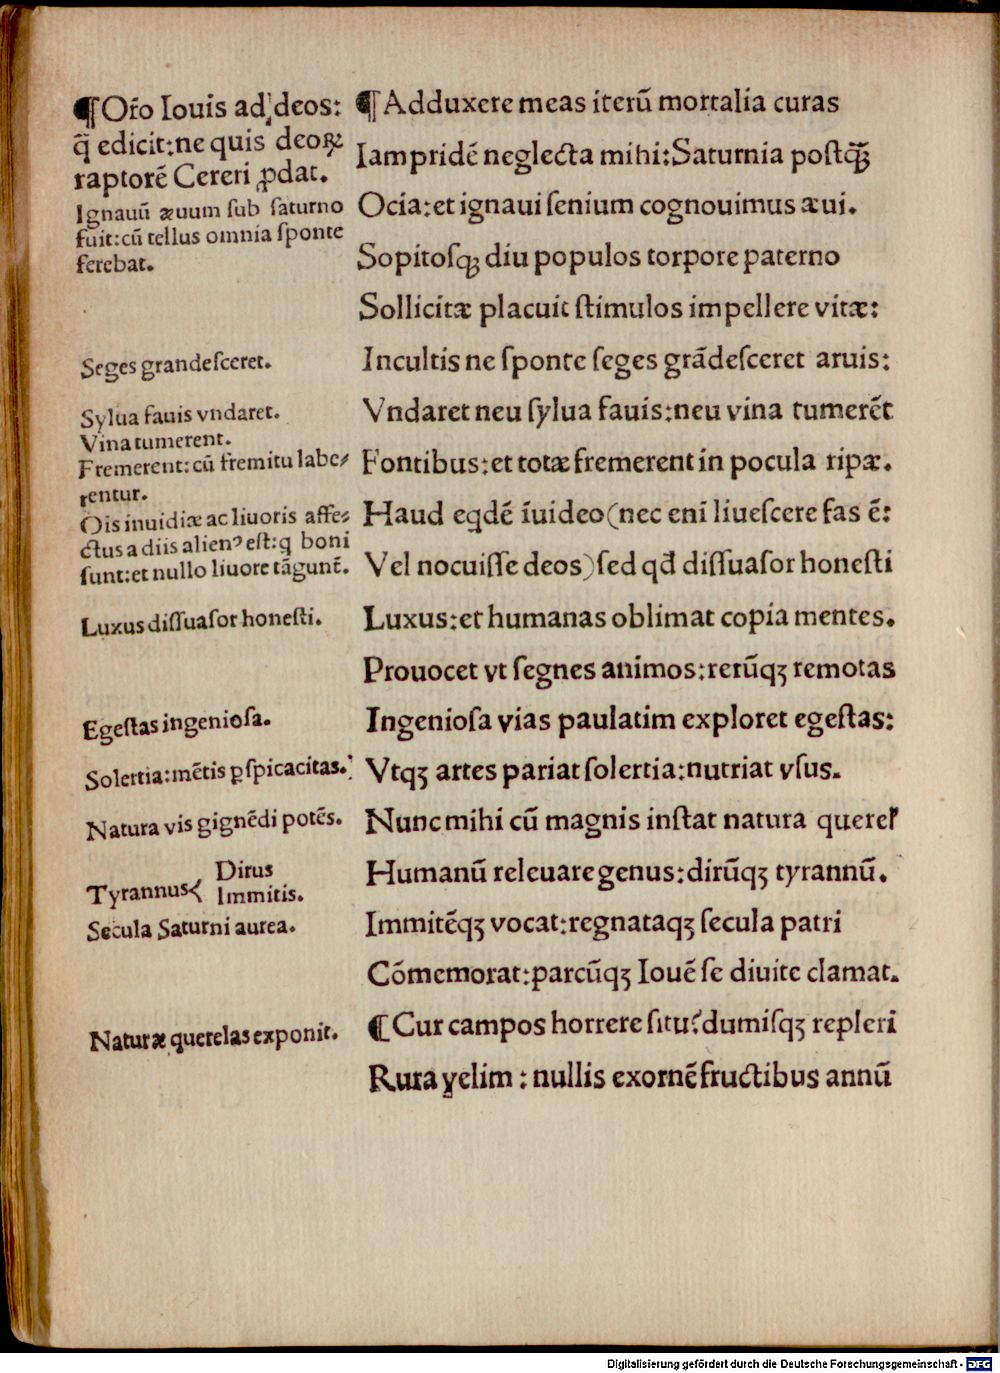 ¶Or̃o Iouis ad deos:
q̃ edicit:ne quis deoꝝ
raptorē Cereri ꝓdat.
Ignauū æuum ſub ſaturno
fuit:cū tellus omnia ſponte
ferebat.
Seges grandeſceret.
Sylua fauis vndaret.
Vina tumerent.
Fremerent:cū fremitu labe⸗
rentur.
Ois inuidiæ ac liuoris affe⸗
ctus a diis alienꝰ eſt:q boni
ſunt:et nullo liuore tāgunt̄.
Luxus diſſuaſor honeſti.
Egeſtas ingenioſa.
Solertia:mētis ꝑſpicacitas.
Natura vis gignēdi potēs.
Tyrannus
Dirus
Immitis.
Secula Saturni aurea.
Naturæ querelas exponit.
¶Adduxere meas iterū mortalia curas
Iampridē neglecta mihi:Saturnia poſtꝗ̃
Ocia:et ignaui ſenium cognouimus æui.
Sopitoſqꝫ diu populos torpore paterno
Sollicitæ placuit ſtimulos impellere vitæ:
Incultis ne ſponte ſeges grādeſceret aruis:
Vndaret neu ſylua fauis:neu vina tumerēt
Fontibus:et totæ fremerent in pocula ripæ.
Haud eqdē īuideo(nec eni liueſcere fas ē:
Vel nocuiſſe deos)ſed qđ diſſuaſor honeſti
Luxus:et humanas oblimat copia mentes.
Prouocet vt ſegnes animos:rerūqꝫ remotas
Ingenioſa vias paulatim exploret egeſtas:
Vtqꝫ artes pariat ſolertia:nutriat vſus.
Nunc mihi cū magnis inſtat natura querel'
Humanū releuare genus:dirūqꝫ tyrannū.
Immitēqꝫ vocat:regnataqꝫ ſecula patri
Cōmemorat:parcūqꝫ Iouē ſe diuite clamat.
¶Cur campos horrere ſitu?dumiſqꝫ repleri
Rura velim : nullis exornē fructibus annū
Digitalisierung gefördert durch die Deutsche Forschungsgemeinschaft - DFG